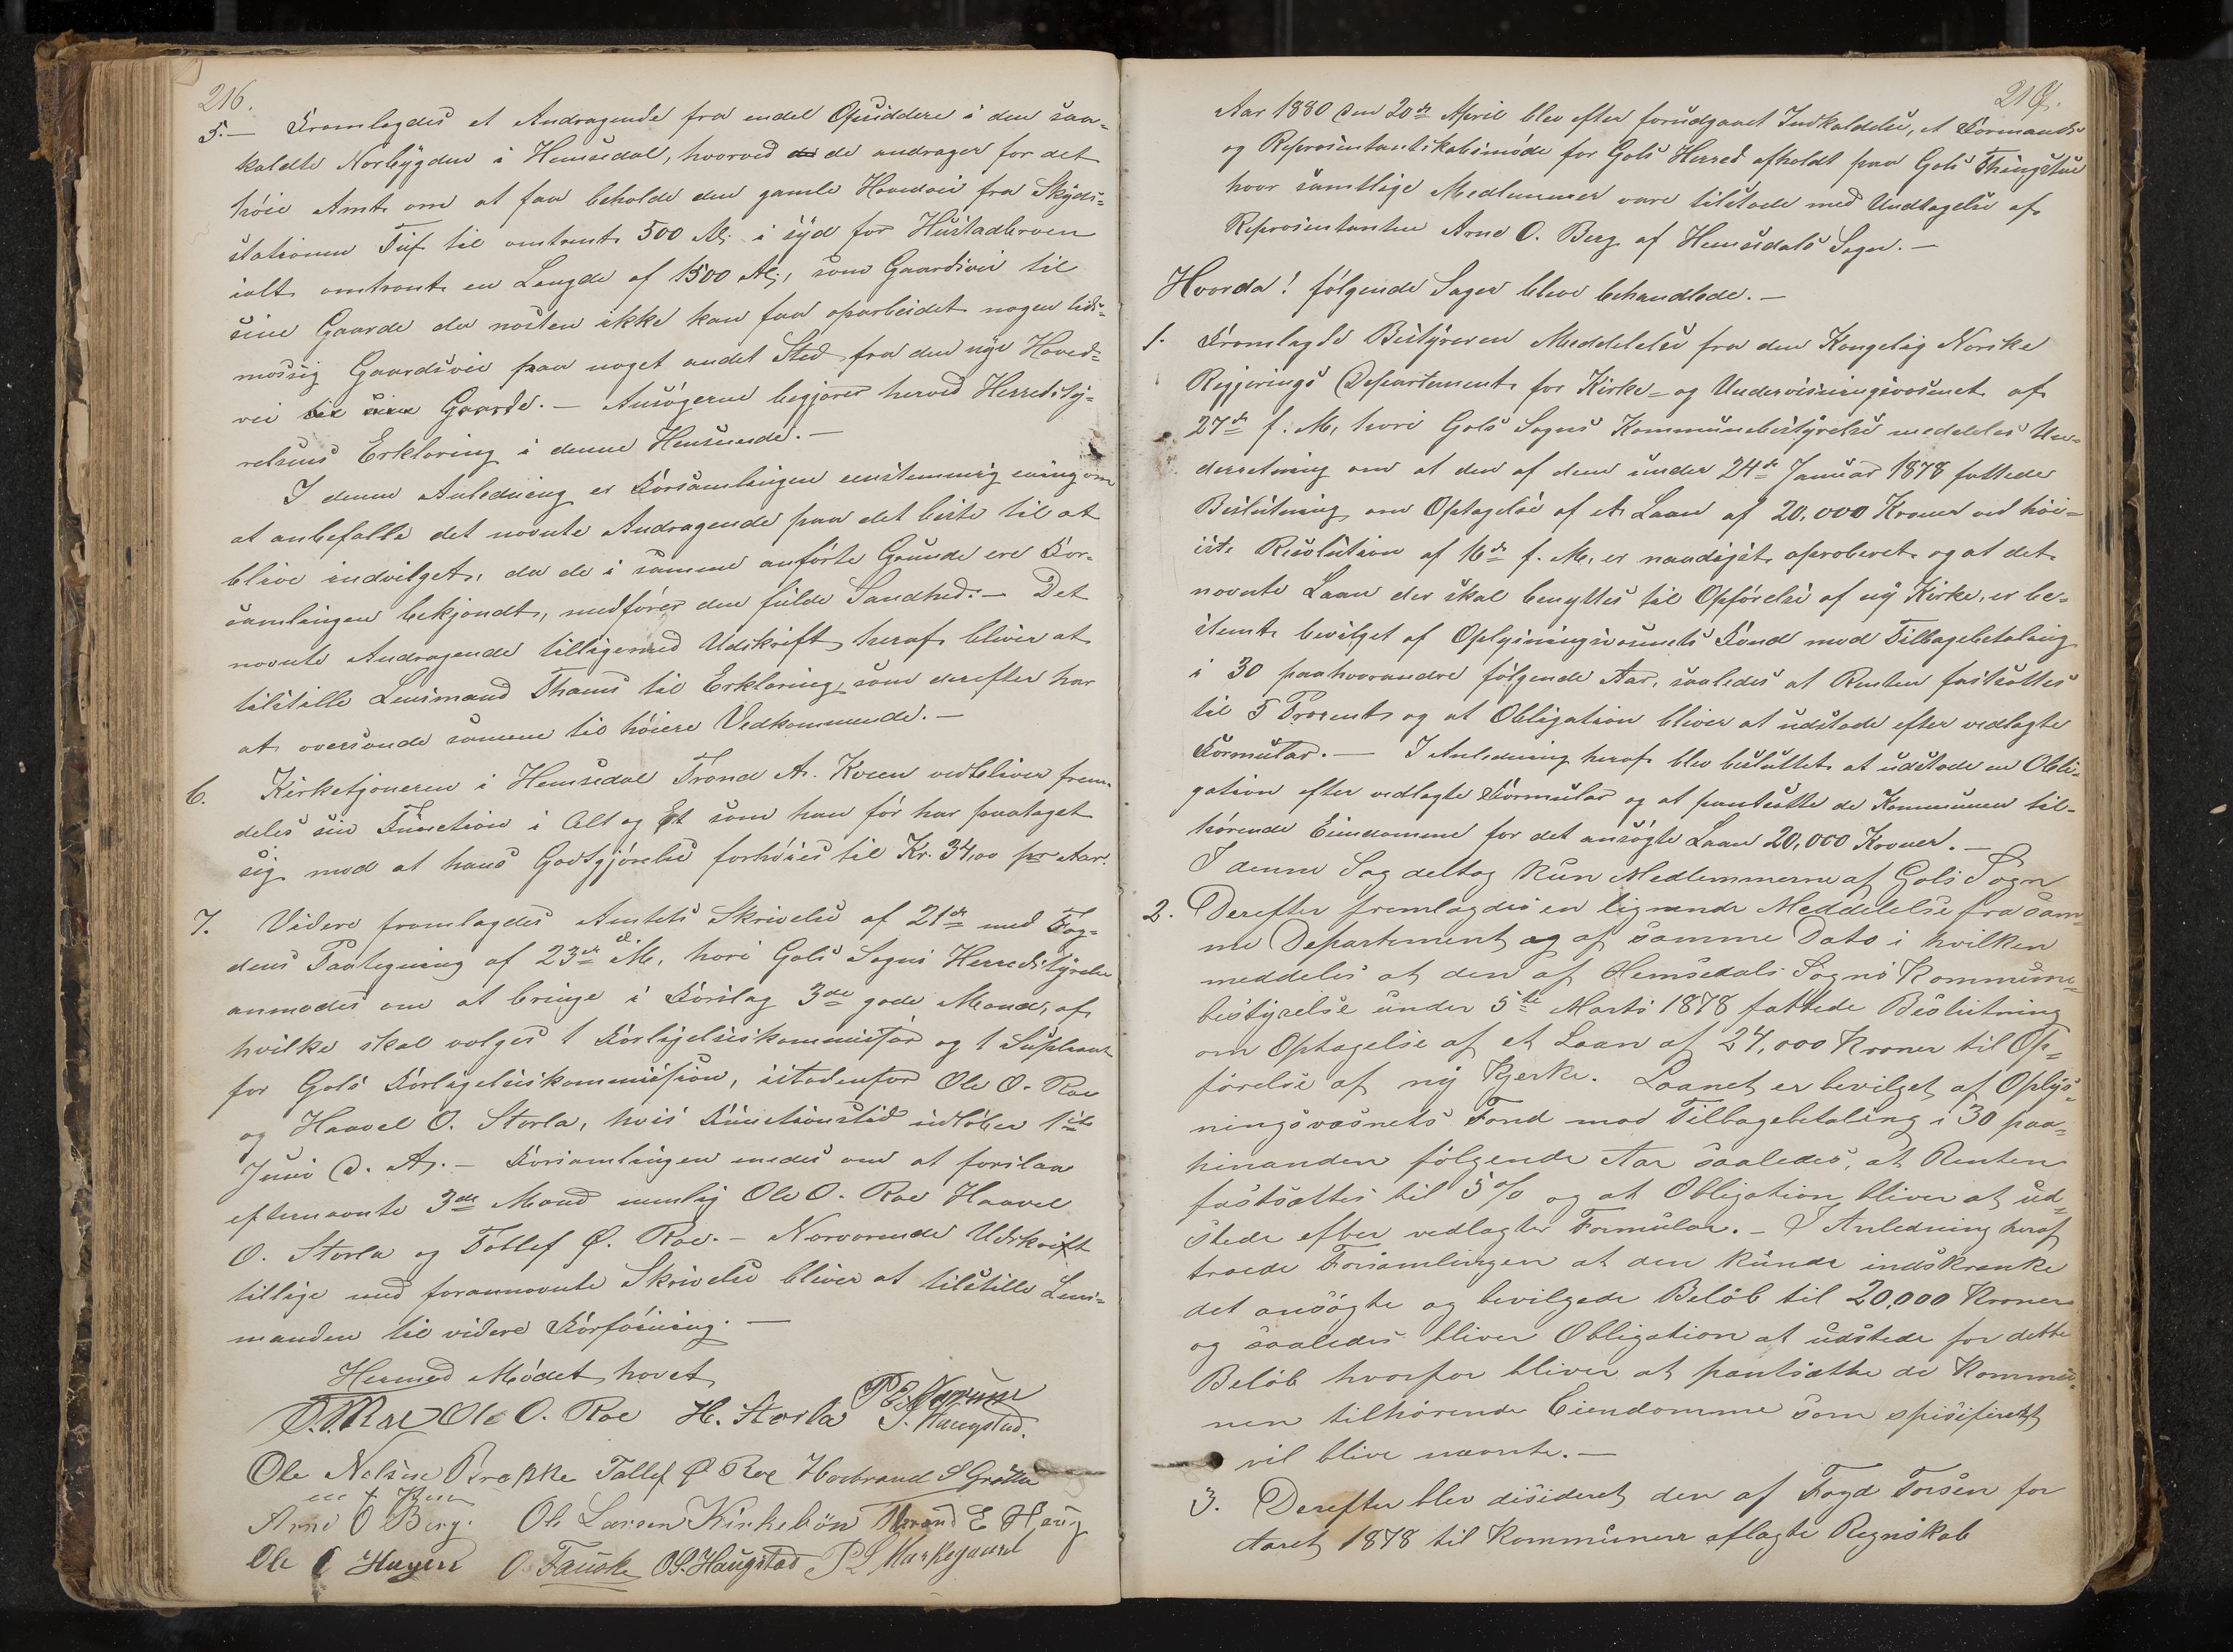 216.
5.— Fremlagdes et Andragende fra endel Opsiddere i den saa-
kaldte Norbygden i Hemsedal, hvorved de de andrager for det
høie Amt om at faa beholde den gamle Hovedvei fra Skyds-
stationen Tuf til omtrent 500 Al. i syd for Hustadbroen
ialt omtrent en Længde af 1500 Al., som Gaardsvei til
sine Gaarde da næsten ikke kan faa oparbeidet nogen leds-
mæssig Gaardsvei paa noget andet Sted fra den nye Hoved-
vei til sine Gaarde.— Ansøgerne begjærer herved Herredsty-
relsens Erklæring i denne Henseende.—
I denne Anledning er Forsamlingen enstemmig enig om
at anbefalle det nævnte Andragende paa det beste til at
blive indvilget, da de i samme anførte Grunde ere For-
samlingen bekjendt, medfører den fulde Sandhed.— Det
nævnte Andragende tilligemed Udskrift heraf bliver at
tilstille Lensmand Thams til Erklæring, som derefter har
at oversende samme til høiere Vedkommende.—
6. Kirketjeneren i Hemsedal Trond A. Kveen vedbliver frem-
deles sin Function i Alt og Et som han før har paataget
sig mod at hans Godtgjørelse forhøies til Kr. 34,00 pr Aar.
7. Videre fremlagdes Amtets Skrivelse af 21de med Fog-
dens Paategning af 23de d. M., hvori Gols Sogns Herredstyrelse
anmodes om at bringe i Forslag 3de gode Mænd, af
hvilke skal vælges 1 Forligelseskommissær og 1 Supleant
for Gols Forligelseskommission, istedenfor Ole O. Roe
og Haavel O. Storla, hvis Functionstid udløber 1ste
Juni d. A.— Forsamlingen enedes om at forslaa
efternævnte 3de Mænd nemlig Ole O. Roe Haavel
O. Storla og Tollef Ø. Roe.— Nærværende Udskrift
tillige med forannævnte Skrivelse bliver at tilstille Lens-
manden til videre Forføining.—
Hermed Mødet hævet
Ole O. Roe H. Storla
Ole Nelsen Brakke Tollef Ø Roe Haabrand S Grøtte
Arne O Berg. Ole Larsen Kirkebøn Thrond E Haug
Ole O Huyen O. Fauske O.S. Haugstad
217.
Aar 1880 den 20de April blev efter forudgaaet Indkaldelse, et Formands-
og Repræsentantskabsmøde for Gols Herred afholdt paa Gols Thingstue
hvor samtlige Medlemmer vare tilstede med Undtagelse af
Repræsentanten Arne O. Berg af Hemsedals Sogn.—
Hvorda! følgende Sager bleve behandlede.—
1. Fremlagde Bestyreren Meddelelse fra den Kongelig Norske
Regjerings Departement for Kirke- og Undervisningsvæsenet af
27de f. M, hvori Gols Sogns Kommunebestyrelse meddeles Un-
derretning om at den af dem under 24de Januar 1878 fattede
Beslutning om Optagelse af et Laan af 20,000 Kroner ved høi-
iste Resolution af 16de f. M. er naadigst aproberet og at det
nævnte Laan der skal benyttes til Opførelse af ny Kirke, er be-
stemt bevilget af Oplysningsvæsenets Fond mod Tilbagebetaling
i 30 paahverandre følgende Aar, saaledes at Renten fastsættes
til 5 Prosent og at Obligation bliver at udstede efter vedlagte
Formular.— I Anledning heraf blev besluttet at udstede en Obli-
gation efter vedlagte Formular og at pantsætte de Kommunen til-
hørende Eiendomme for det ansøgte Laan 20,000 Kroner.—
I denne Sag deltog kun Medlemmerne af Gols Sogn
2. Derefter fremlagdes en lignende Meddelelse fra sam-
me Departement og af samme Dato i hvilken
meddeles at den af Hemsedals Sogns Kommune-
bestyrelse under 5te Marts 1878 fattede Beslutning
om Optagelse af et Laan af 24,000 Kroner til Op-
førelse af ny Kjerke. Laanet er bevilget af Oplys-
ningsvæsnets Fond mod Tilbagebetaling i 30 paa-
hinanden følgende Aar saaledes, at Renten
fastsættes til 5% og at Obligation bliver at ud-
stede efter vedlagte Formular.— I Anledning heraf
troede Forsamlingen at den kunde indskrænke
det ansøgte og bevilgede Beløb til 20,000 Kroner
og saaledes bliver Obligation at udstede for dette
Beløb hvorfor bliver at pantsætte de Kommu-
nen tilhørende Eiendomme som spisifiseret
vil blive nævnte.—
3. Derefter blev desideret den af Foged Torsen for
Aaret 1878 til Kommunen aflagte Regnskab